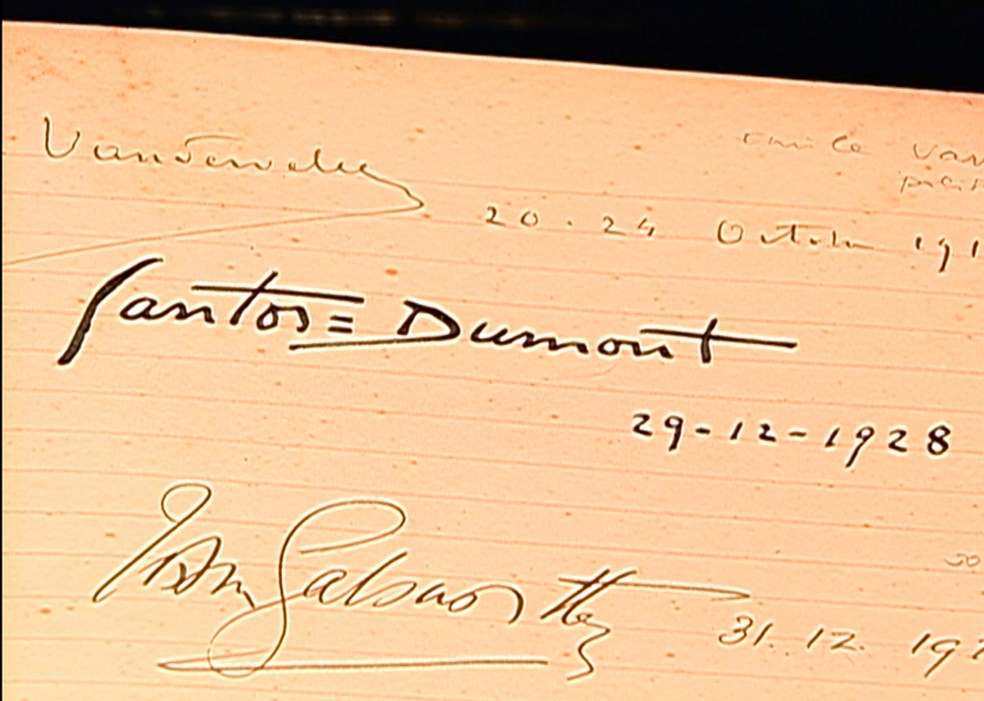 Vandervelde
20.24 Octobre 191
Santos=Dumont
29-12-1928
John Galsworthy
31.12.192